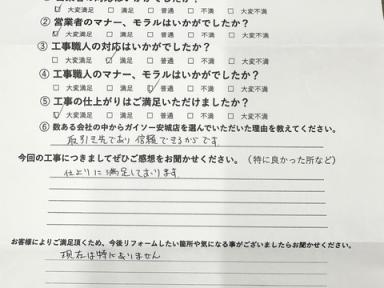 □ 大変満足 □ 満足 □ 普通 □ 不満 □ 大変不満
② 営業者のマナー、モラルはいかがでしたか？
□ 大変満足 □ 満足 □ 普通 □ 不満 □ 大変不満
③ 工事職人の対応はいかがでしたか？
□ 大変満足 □ 満足 □ 普通 □ 不満 □ 大変不満
④ 工事職人のマナー、モラルはいかがでしたか？
□ 大変満足 □ 満足 □ 普通 □ 不満 □ 大変不満
⑤ 工事の仕上がりはご満足いただけましたか？
□ 大変満足 □ 満足 □ 普通 □ 不満 □ 大変不満
⑥ 数ある会社の中からガイソー安城店を選んでいただいた理由を教えてください。
取引き先であり信頼できるからです
今回の工事につきましてぜひご感想をお聞かせください。（特に良かった所など）
仕上りに満足しております
お客様によりご満足頂くため、今後リフォームしたい箇所や気になる事がございましたらお聞かせください。
現在は特にありません